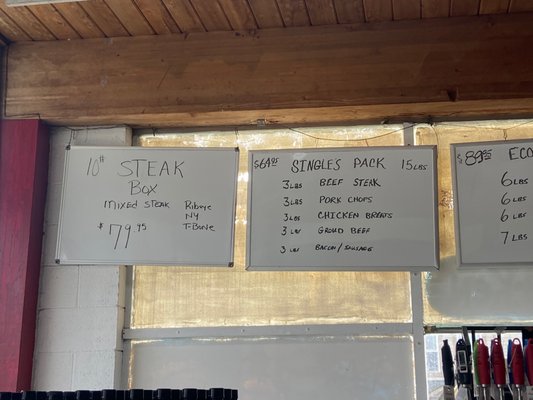 10# STEAK
BOX
MIXED STEAK Ribeye
NY
T-Bone
$79.95
$64.95 SINGLES PACK 15LBS
3LBS BEEF STEAK
3LBS PORK CHOPS
3LBS CHICKEN BREATS
3LBS GROUD BEEF
3LBS BACON/SAUSAGE
$89.95 ECO
6LBS
6LBS
6LBS
7LBS